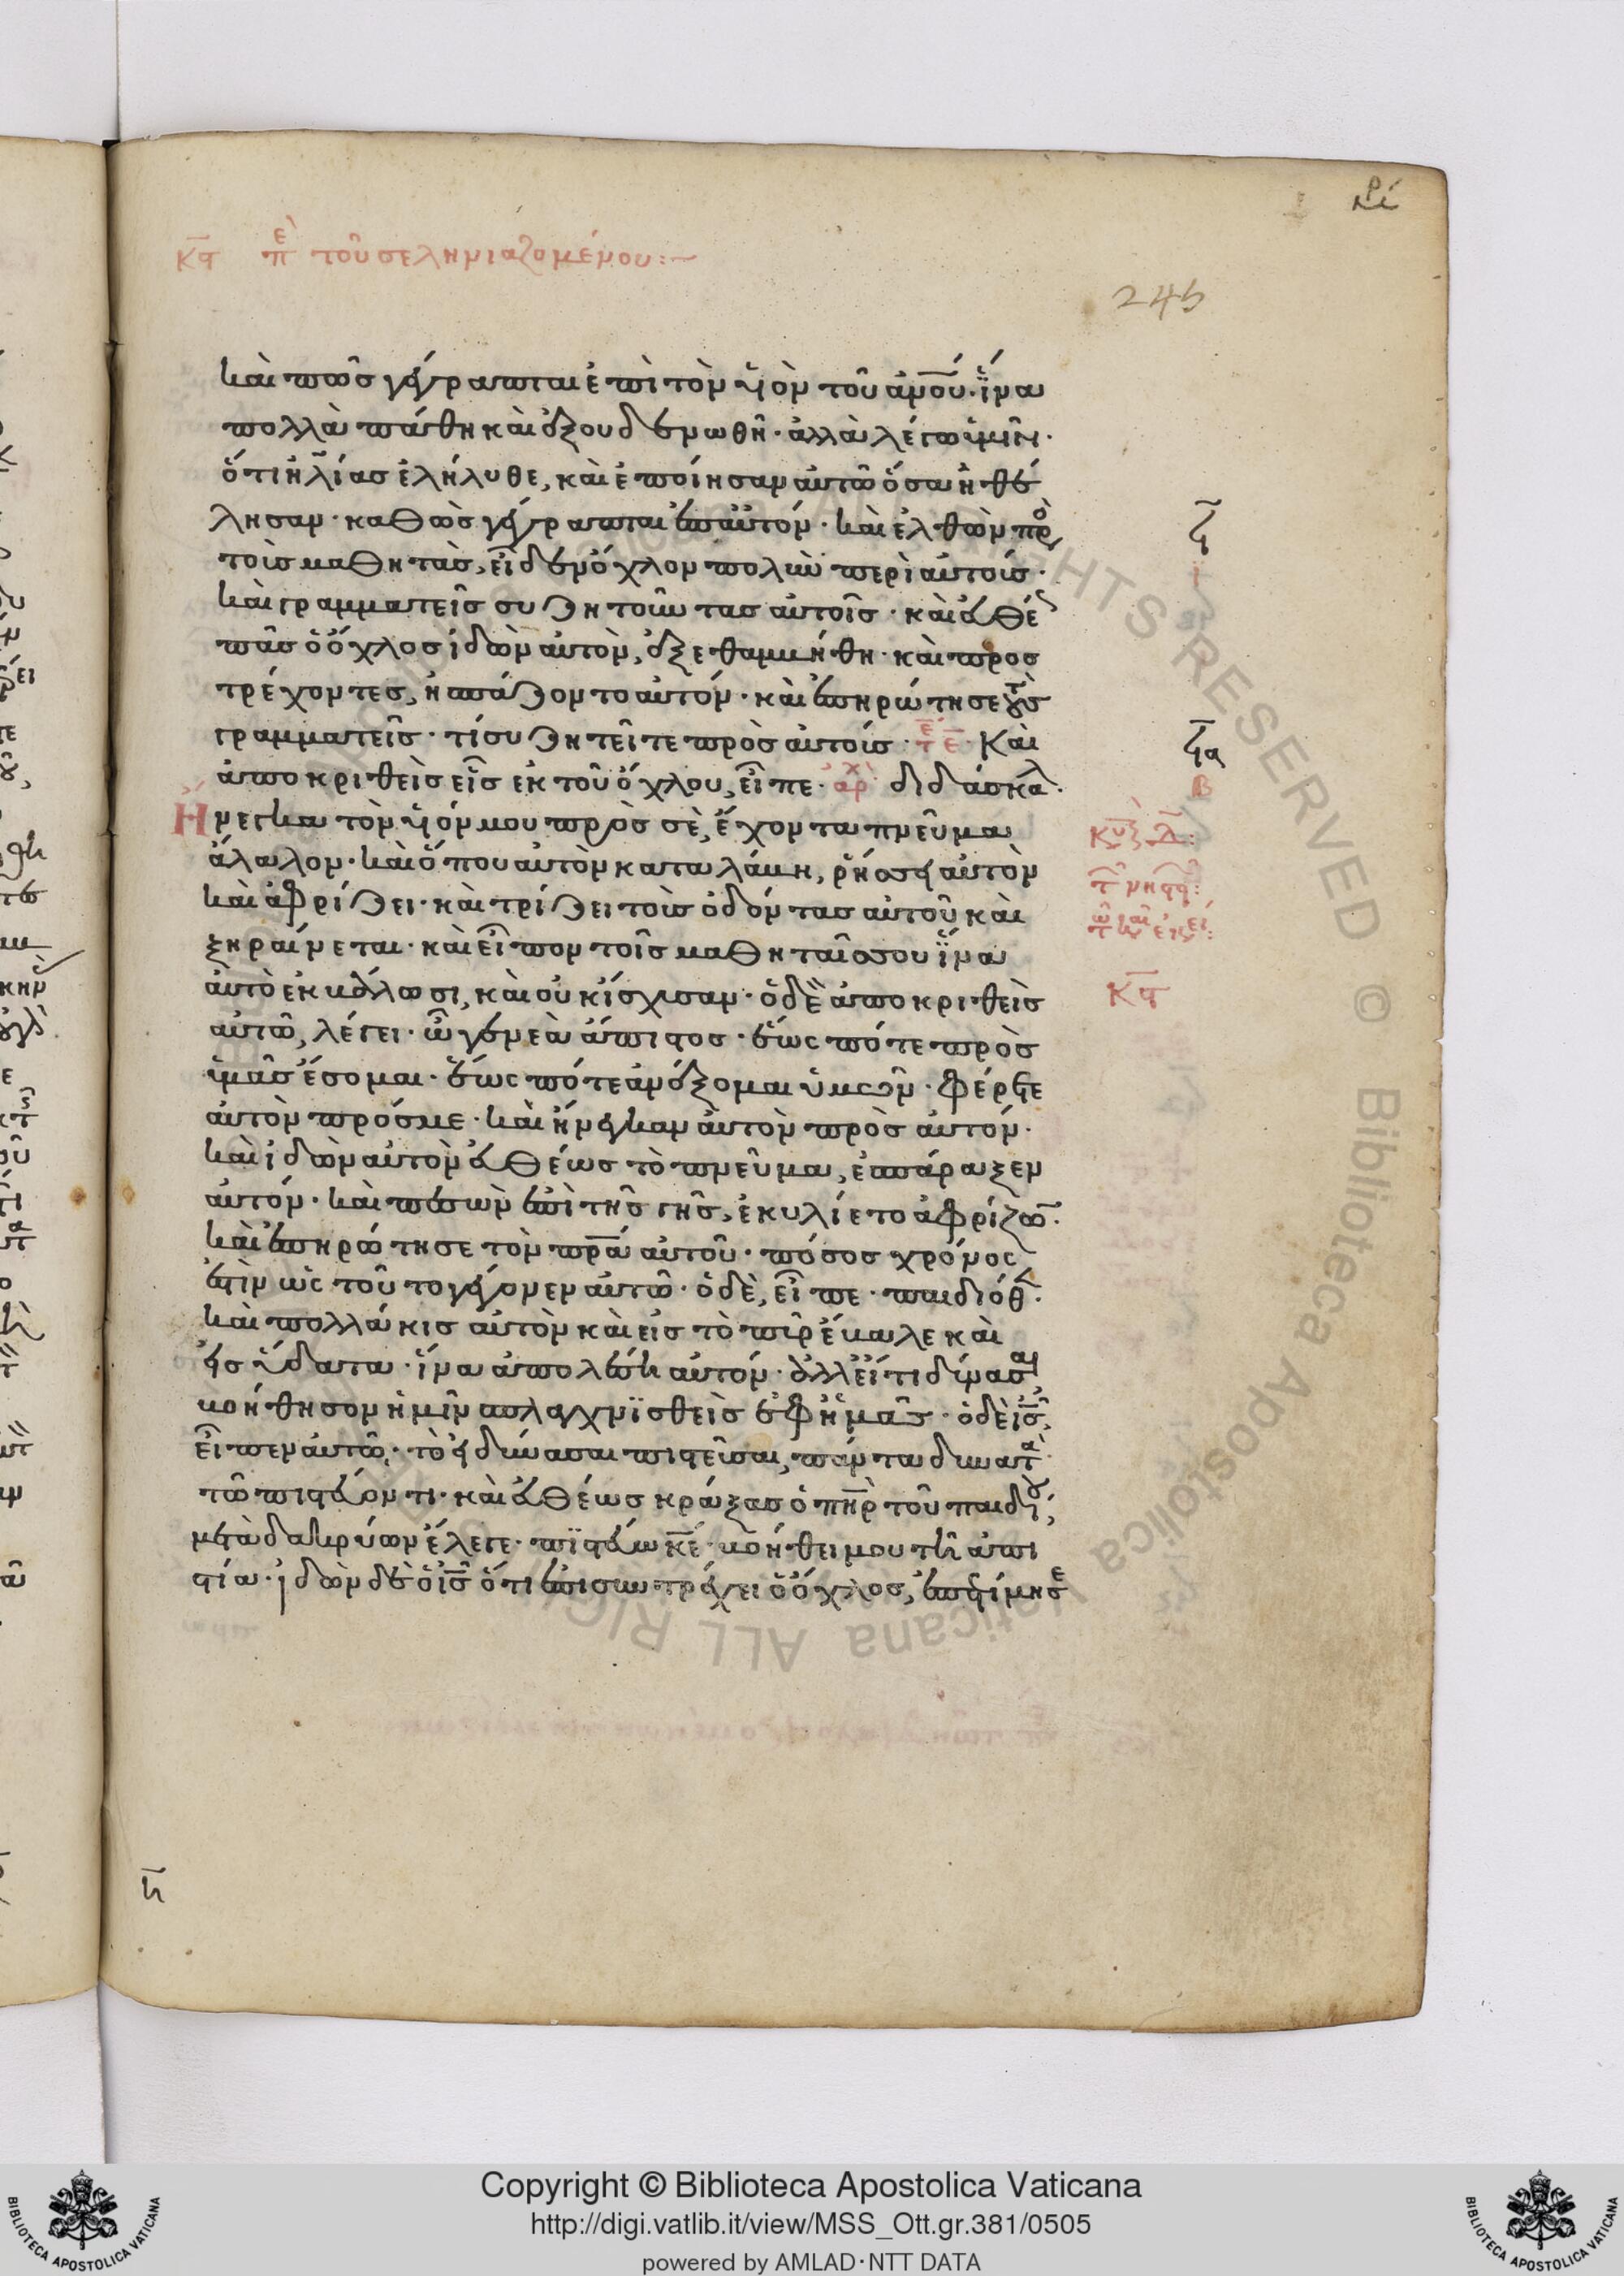 ρι
κϛ ἐπὶ τοῦ σεληνιαζομένου:~
245
καὶ πῶς γέγραπται ἐπὶ τὸν υἱὸν τοῦ ἀνου. ἵνα
πολλὰ πάθη καὶ ἐξουδενωθῆ· ἀλλὰ λέγω ὑμῖν·
ὅτι ἠλίας ἐλήλυθε, καὶ ἐποίησαν αὐτῶ ὅσα ἠθέ
λησαν· καθὼς γέγραπται ἐπ αὐτόν· καὶ ἐλθὼν πρὸς
τοὺς μαθητὰς, εἶδεν ὄχλον πολὺν περὶ αὐτούς·
καὶ γραμματεῖς συζητοῦντας αὐτοῖς· καὶ εὐθέως
πᾶς ὁ ὄχλος ἰδὼν αὐτὸν, ἐξεθαμβήθη· καὶ προσ
τρέχοντες, ἠσπάζοντο αὐτόν· καὶ ἐπηρώτησε τοὺς
γραμματεῖς· τί συζητεῖτε πρὸς αὐτούς· τε ε Καὶ
ἀποκριθεὶς εἷς ἐκ τοῦ ὄχλου, εἶπε· ἀρχ διδάσκαλ·
Ἤνεγκα τὸν υἱόν μου πρὸς σὲ, ἔχοντα πνεῦμα
ἄλαλον· καὶ ὅπου αὐτὸν καταλάβη, ῥήσσει αὐτὸν
καὶ ἀφρίζει· καὶ τρίζει τοὺς ὀδόντας αὐτοῦ καὶ
ξηραίνεται· καὶ εἶπον τοῖς μαθηταῖς σου ἵνα
αὐτὸ ἐκβάλωσι, καὶ οὐκ ἴσχυσαν· ὁ δὲ ἀποκριθεὶς
αὐτῶ, λέγει· ὦ γενεὰ ἄπιστος· ἕως πότε πρὸς
ὑμᾶς ἔσομαι· ἕως πότε ἀνέξομαι ὑμῶν· φέρετε
αὐτὸν πρός με· καὶ ἤνεγκαν αὐτὸν πρὸς αὐτόν·
καὶ ἰδὼν αὐτὸν εὐθέως τὸ πνεῦμα, ἐσπάραξεν
αὐτόν· καὶ πεσὼν ἐπὶ τῆς γῆς, ἐκυλίετο ἀφρίζων·
καὶ ἐπηρώτησε τὸν πρα αὐτοῦ· πόσος χρόνος
ἐστὶν ὡς τοῦτο γέγονεν αὐτῶ· ὁ δὲ, εἶπε· παιδιόθεν·
καὶ πολλάκις αὐτὸν καὶ εἰς τὸ πῦρ ἔβαλε καὶ
εἰς ὕδατα· ἵνα ἀπολέση αὐτόν· ἀλλ εἴ τι δύνασαι
βοήθησον ἡμῖν σπλαγχνισθεὶς ἐφ ἡμᾶς· ὁ δὲ ις,
εἶπεν αὐτῶ· τὸ εἰ δύνασαι πιστεῦσαι, πάντα δυνατὰ
τῶ πιστεύοντι· καὶ εὐθέως κράξας ὁ πηρ τοῦ παιδίου,
μετὰ δακρύων ἔλεγε· πιστεύω κε· βοήθει μου τῆ ἀπι
στία· ἰδὼν δὲ ὁ ις ὅτι ἐπισυντρέχει ὁ ὄχλος, ἐπετίμησε
ϟ
ϟα
β
κυ δ
τ νηστ
κϛ
η